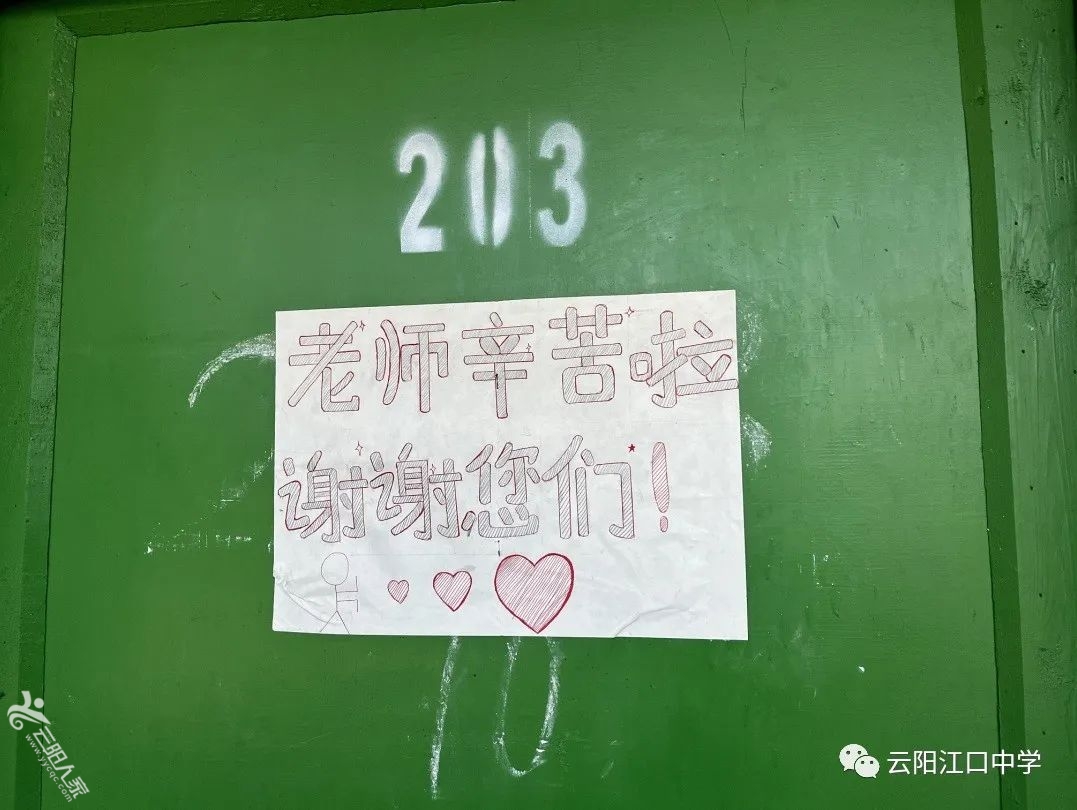 203
老师辛苦啦
谢谢您们！
10
云阳人家
www.yycqc.com
云阳江口中学